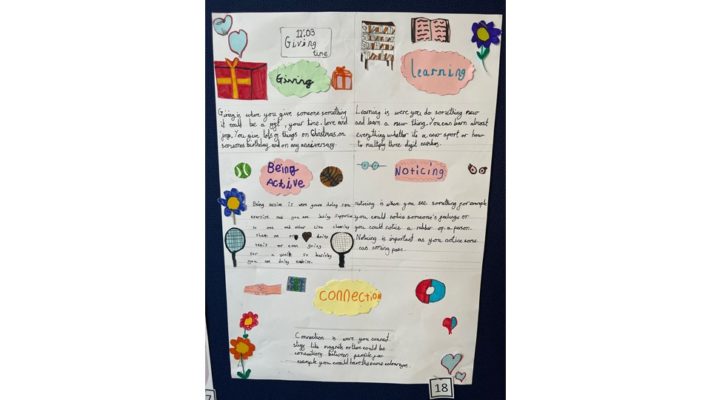 12:03
Giving
time
Giving
learning
Giving is where you give someone something
it could be a gift, your time, love and
joy. You give lots of things on Christmas, on
someones birthday and on any anniversary.
Learning is were you do something new
and learn a new thing. You can learn almost
everything whether it's a new sport or how
to multiply three digit numbers.
Being
Active
Noticing
Being active is were your doing some
exercise and you are being
to one and other like
them on or doing
tennis or even going
for a walk so basicly
you are doing exercise.
noticing is when you see something for example
you could notice someone's feelings or
you could notice a robber or a person.
Noticing is important as you notice some
can serving
connection
Connection is were you connect
stuff like magnets or there could be
connections between people for
example you could have the same
18
7